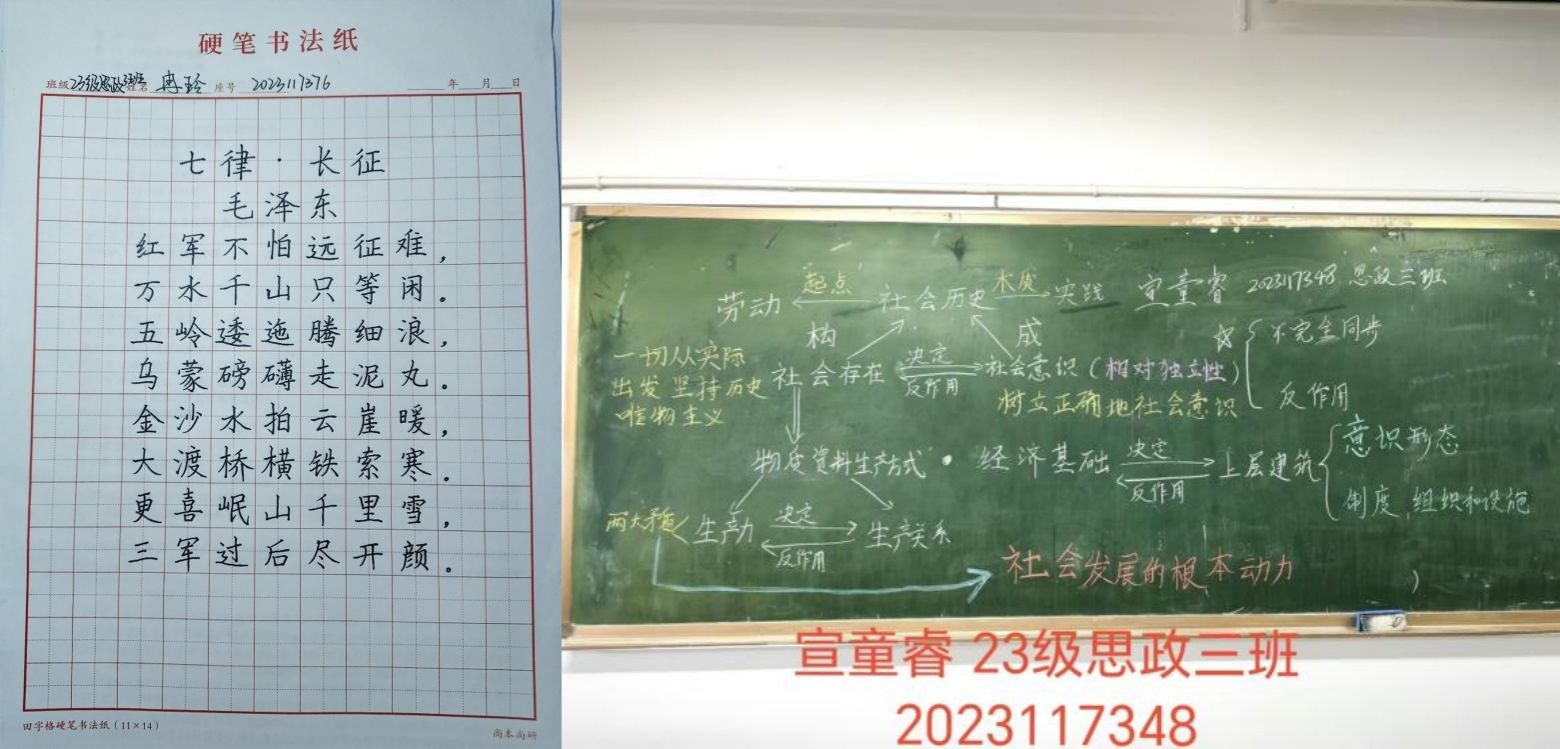 硬笔书法纸
班级 23级思政3班 姓名 冉玲 座号 2023117376 年 月 日
七律·长征
毛泽东
红军不怕远征难，
万水千山只等闲。
五岭逶迤腾细浪，
乌蒙磅礴走泥丸。
金沙水拍云崖暖，
大渡桥横铁索寒。
更喜岷山千里雪，
三军过后尽开颜。
田字格硬笔书法纸（11×14）
尚本尚研
劳动 起点 社会历史 本质 实践 宣童睿 2023117348 思政三班
构 成
一切从实际
出发坚持历史
唯物主义
社会存在 决定 反作用 社会意识（相对独立性） 不完全同步
反作用
树立正确地社会意识
物质资料生产方式 · 经济基础 决定 反作用 上层建筑 意识形态
制度、组织和设施
两大矛盾 生产力 决定 反作用 生产关系
社会发展的根本动力
宣童睿 23级思政三班
2023117348